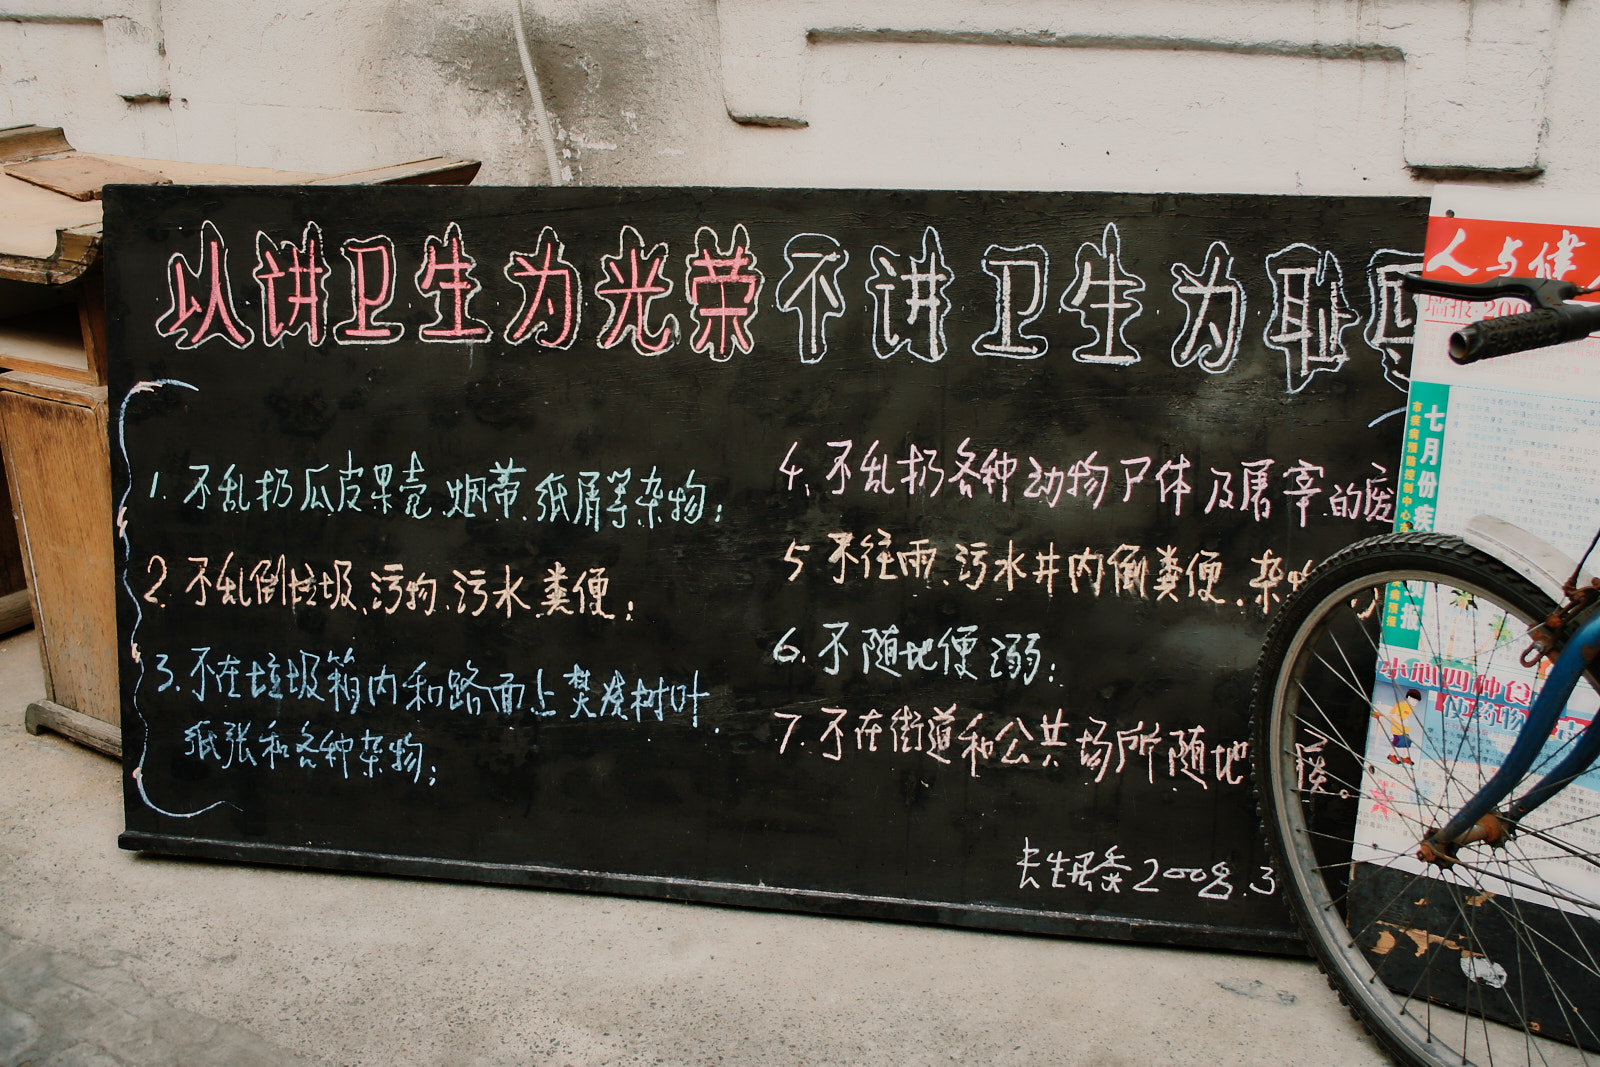 以讲卫生为光荣不讲卫生为耻
1.不乱扔瓜皮果壳.烟蒂.纸屑等杂物;
2.不乱倒垃圾.污物.污水粪便;
3.不在垃圾箱内和路面上焚烧树叶.
纸张和各种杂物;
4.不乱扔各种动物尸体及屠宰的废
5不往雨.污水井内倒粪便.杂物
6.不随地便溺;
7.不在街道和公共场所随地 痰。
2008.3
人与健
墙报·200
七月份疾
市疾病预防控制中心
报
小心四种食
使药物